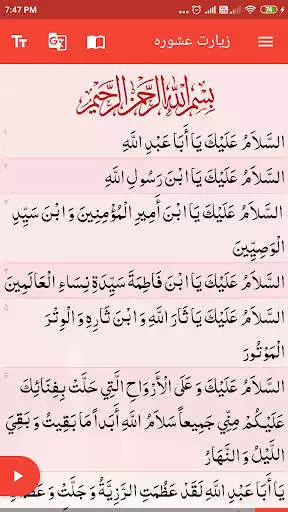 7:47 PM
زیارت عشوره
بِسْمِ اللهِ الرَّحْمنِ الرَّحِيْمِ
السَّلاَمُ عَلَيْكَ يَا أَبَا عَبْدِ اللَّهِ
السَّلاَمُ عَلَيْكَ يَا ابْنَ رَسُولِ اللَّهِ
السَّلاَمُ عَلَيْكَ يَا ابْنَ أَمِيرِ الْمُؤْمِنِينَ وَ ابْنَ سَيِّدِ
الْوَصِيِّينَ
السَّلاَمُ عَلَيْكَ يَا ابْنَ فَاطِمَةَ سَيِّدَةِ نِسَاءِ الْعَالَمِينَ
السَّلاَمُ عَلَيْكَ يَا ثَارَ اللَّهِ وَ ابْنَ ثَارِهِ وَ الْوِتْرَ
الْمَوْتُورَ
السَّلاَمُ عَلَيْكَ وَ عَلَى الْأَرْوَاحِ الَّتِي حَلَّتْ بِفِنَائِكَ
عَلَيْكُمْ مِنِّي جَمِيعاً سَلاَمُ اللَّهِ أَبَداً مَا بَقِيتُ وَ بَقِيَ
اللَّيْلُ وَ النَّهَارُ
يَا أَبَا عَبْدِ اللَّهِ لَقَدْ عَظُمَتِ الرَّزِيَّةُ وَ جَلَّتْ وَ عَظُمَتِ